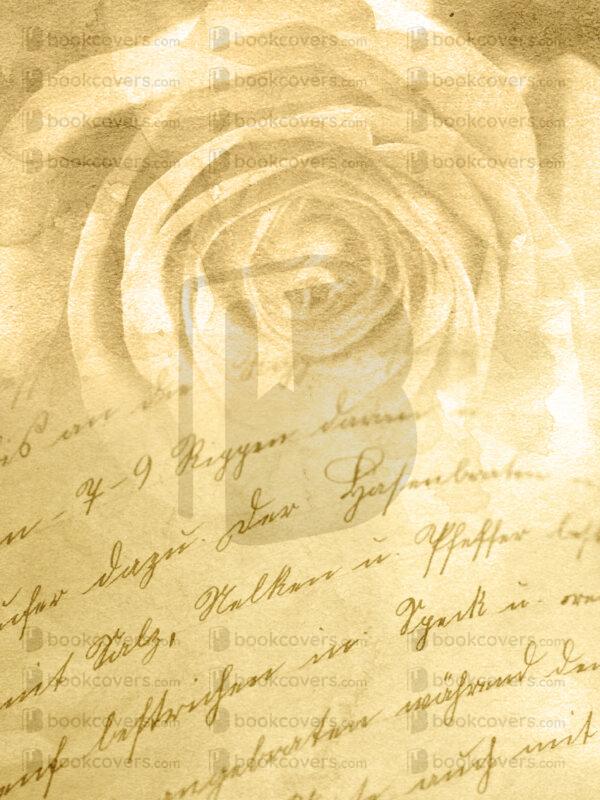 bookcovers.com bookcovers.com bookcovers.com
bookcovers.com bookcovers.com bookcovers.com
bookcovers.com bookcovers.com bookcovers.com
bookcovers.com bookcovers.com bookcovers.com
bis an die
7-9 Rippen daran
dazu. Der Hasenbraten
mit Salz, Nelken u. Pfeffer
bestrichen in Speck u.
angebraten während den
auch mit
bookcovers.com bookcovers.com bookcovers.com
bookcovers.com bookcovers.com bookcovers.com
bookcovers.com bookcovers.com bookcovers.com
bookcovers.com bookcovers.com bookcovers.com